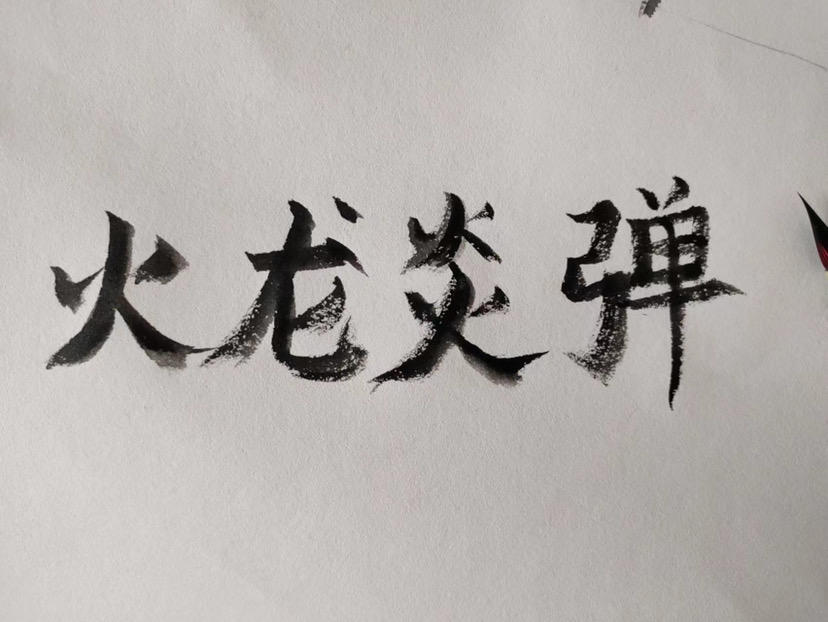 火龙炎弹